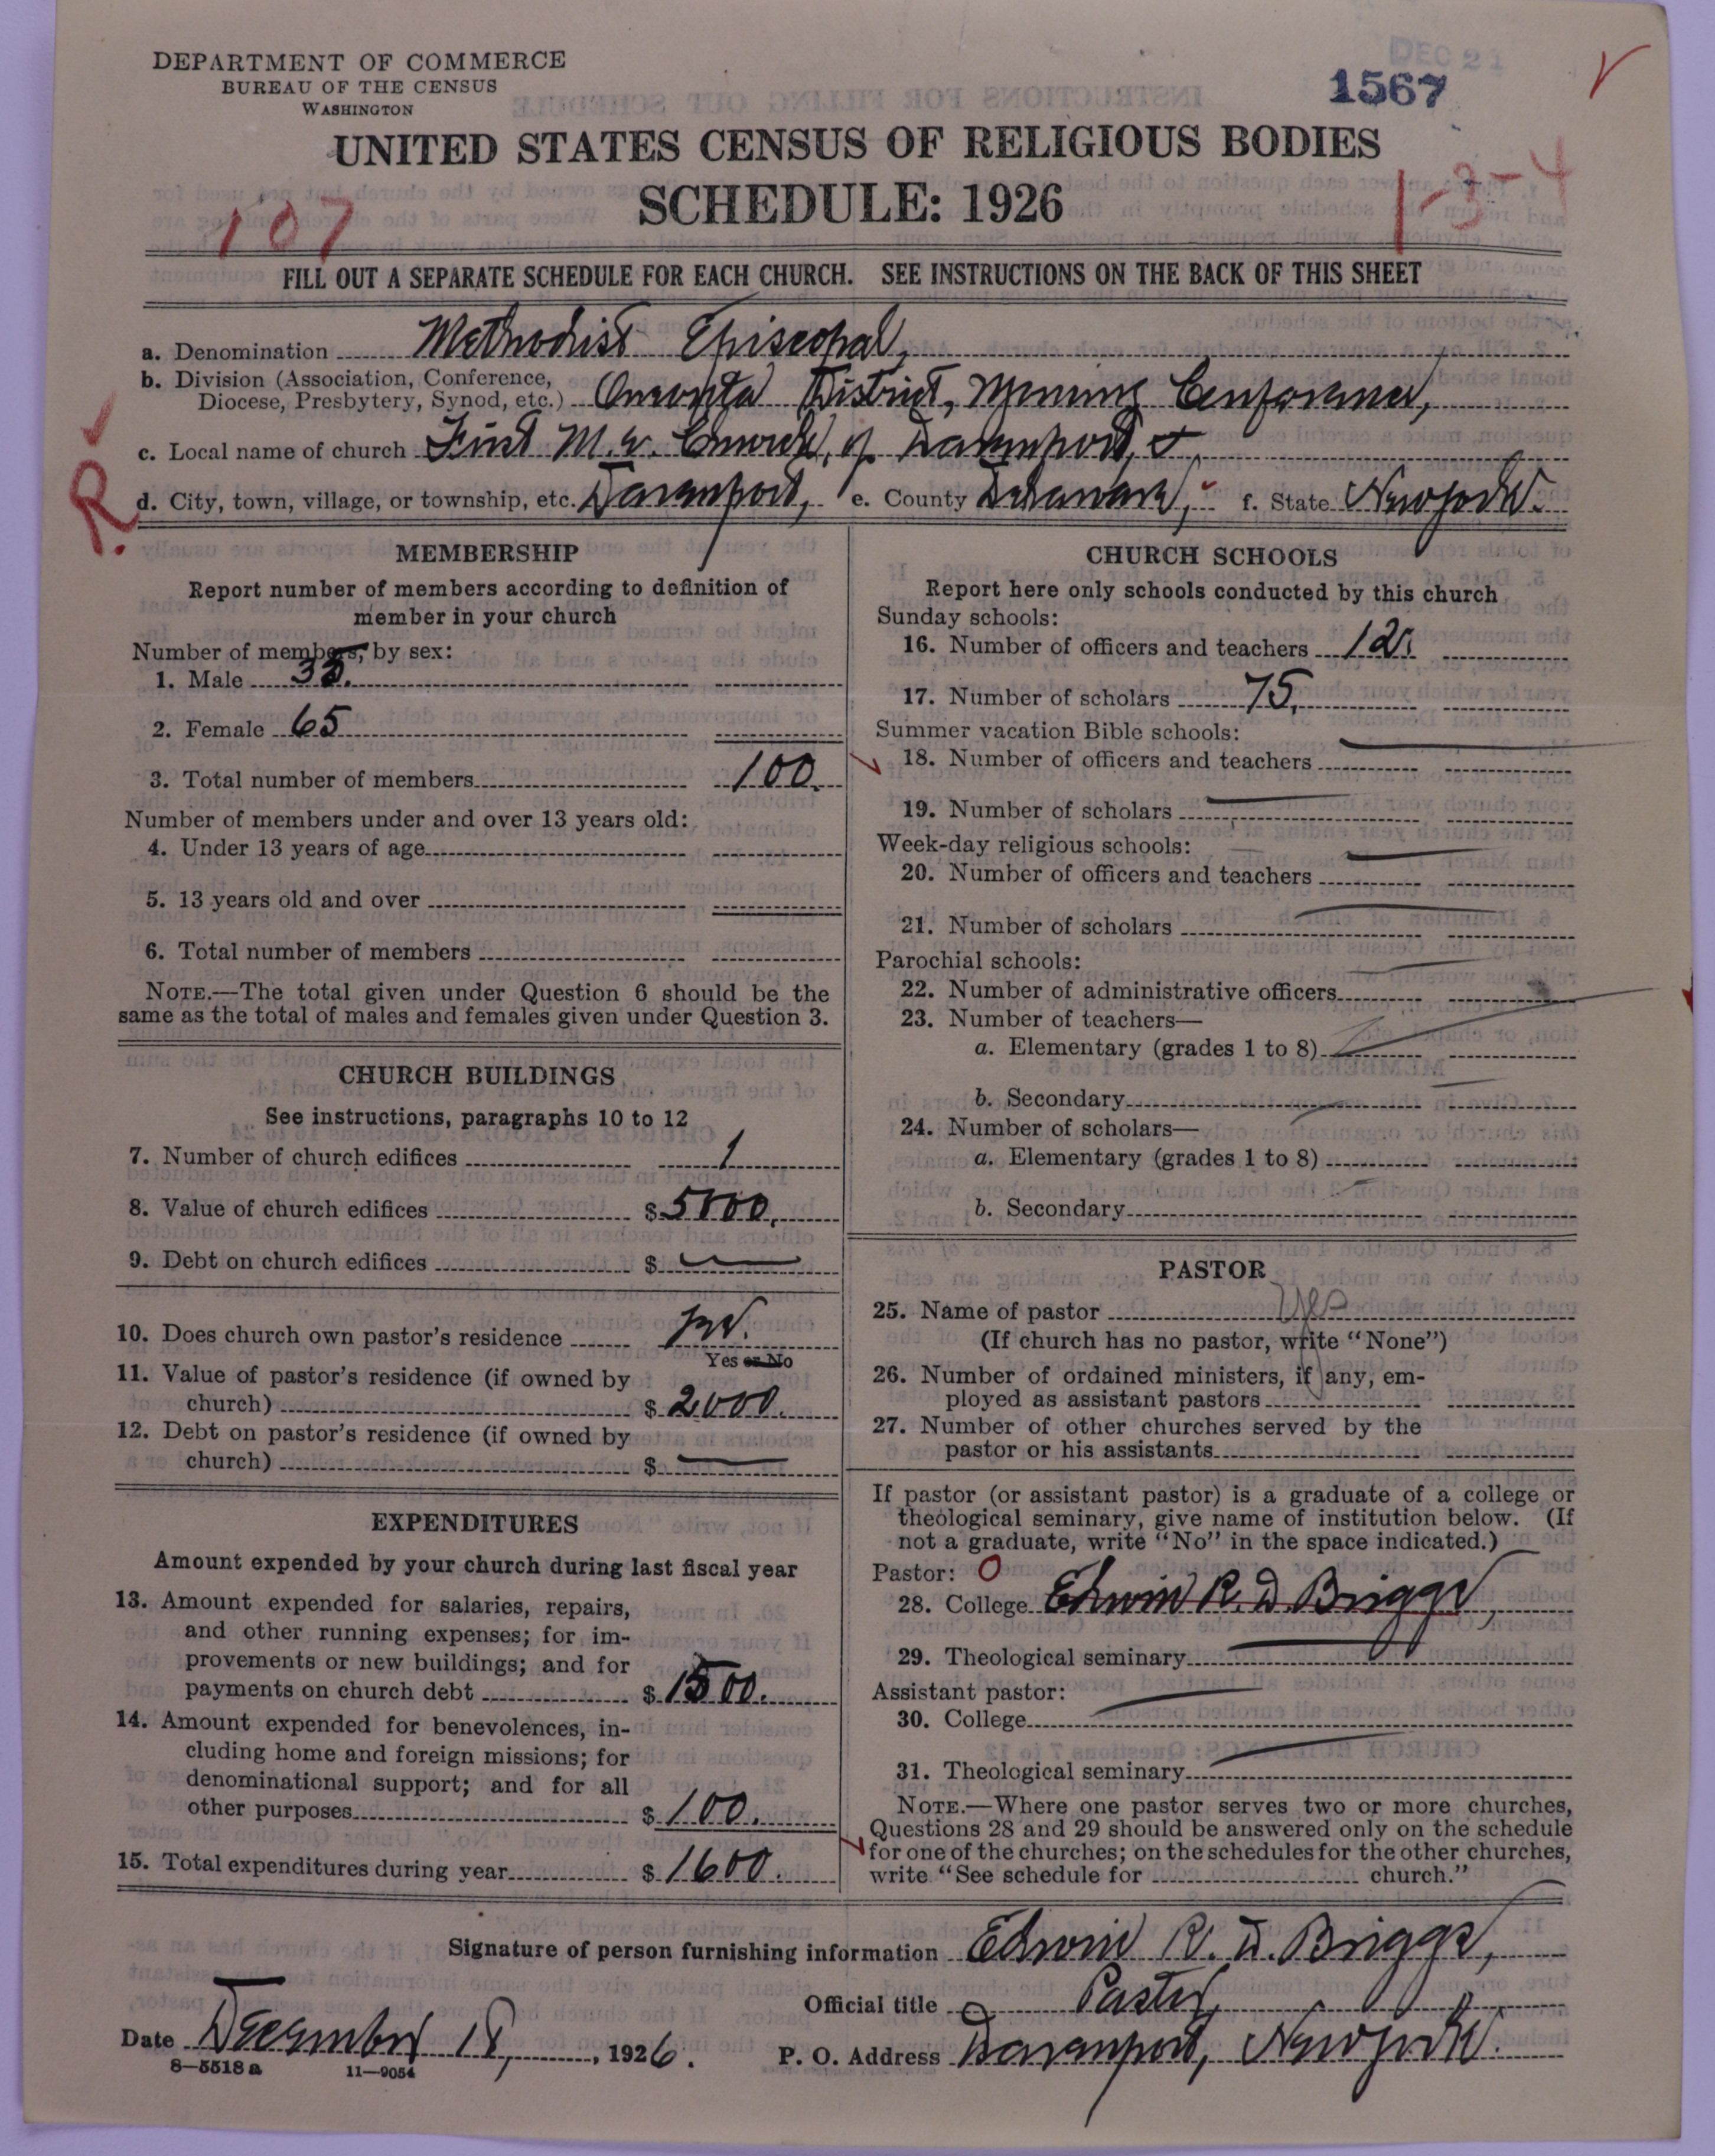 DEPARTMENT OF COMMERCE
BUREAU OF THE CENSUS
WASHINGTON
DEC 21
1567
UNITED STATES CENSUS OF RELIGIOUS BODIES
SCHEDULE: 1926
107
1-3-4
FILL OUT A SEPARATE SCHEDULE FOR EACH CHURCH. SEE INSTRUCTIONS ON THE BACK OF THIS SHEET
a. Denomination Methodist Episcopal,
b. Division (Association, Conference, Diocese, Presbytery, Synod, etc.) Oneonta District, Wyoming Conference,
R.
c. Local name of church First M. E. Church, of Davenport,
d. City, town, village, or township, etc. Davenport, e. County Delaware, f. State New York.
MEMBERSHIP
Report number of members according to definition of
member in your church
Number of members, by sex:
1. Male 35.
2. Female 65
3. Total number of members 100.
Number of members under and over 13 years old:
4. Under 13 years of age
5. 13 years old and over
6. Total number of members
NOTE.—The total given under Question 6 should be the
same as the total of males and females given under Question 3.
CHURCH BUILDINGS
See instructions, paragraphs 10 to 12
7. Number of church edifices 1
8. Value of church edifices $ 5000.
9. Debt on church edifices $
10. Does church own pastor's residence
Yes or No
11. Value of pastor's residence (if owned by
church) $ 2000.
12. Debt on pastor's residence (if owned by
church) $
EXPENDITURES
Amount expended by your church during last fiscal year
13. Amount expended for salaries, repairs,
and other running expenses; for im-
provements or new buildings; and for
payments on church debt $ 1500.
14. Amount expended for benevolences, in-
cluding home and foreign missions; for
denominational support; and for all
other purposes $ 100.
15. Total expenditures during year $ 1600.
CHURCH SCHOOLS
Report here only schools conducted by this church
Sunday schools:
16. Number of officers and teachers 12.
17. Number of scholars 75.
Summer vacation Bible schools:
18. Number of officers and teachers
19. Number of scholars
Week-day religious schools:
20. Number of officers and teachers
21. Number of scholars
Parochial schools:
22. Number of administrative officers
23. Number of teachers—
a. Elementary (grades 1 to 8)
b. Secondary
24. Number of scholars—
a. Elementary (grades 1 to 8)
b. Secondary
PASTOR
25. Name of pastor Yes
(If church has no pastor, write "None")
26. Number of ordained ministers, if any, em-
ployed as assistant pastors
27. Number of other churches served by the
pastor or his assistants
If pastor (or assistant pastor) is a graduate of a college or
theological seminary, give name of institution below. (If
not a graduate, write "No" in the space indicated.)
Pastor: O
28. College Edwin R. D. Briggs,
29. Theological seminary
Assistant pastor:
30. College
31. Theological seminary
NOTE.—Where one pastor serves two or more churches,
Questions 28 and 29 should be answered only on the schedule
for one of the churches; on the schedules for the other churches,
write "See schedule for church."
Signature of person furnishing information Edwin R. D. Briggs,
Official title Pastor,
Date December 18, 1926. P. O. Address Davenport, New York.
8—5518 a 11—9054